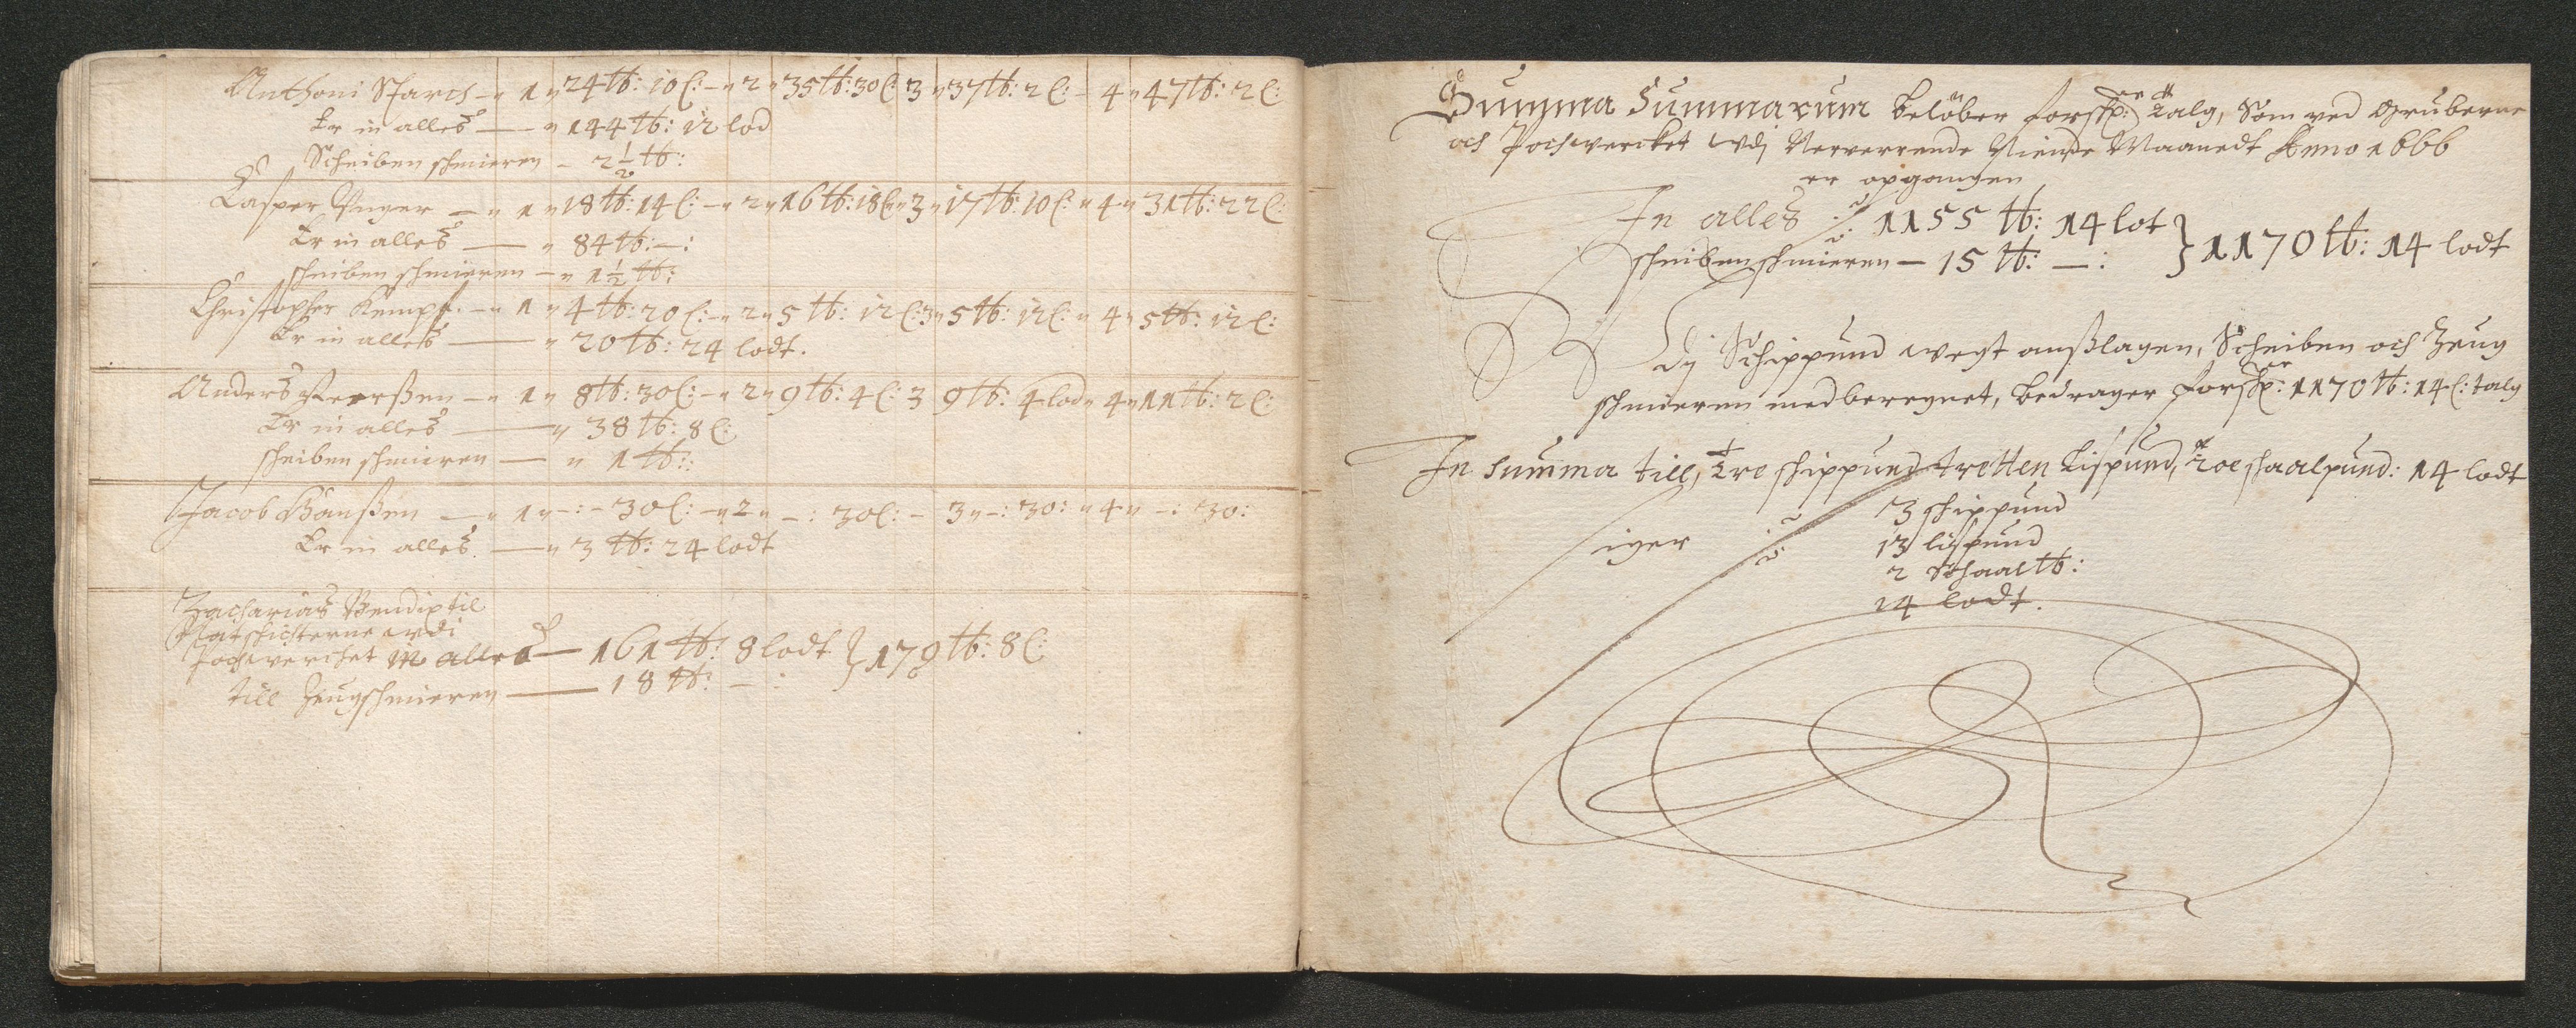 Anthoni Starch – „ 1 „ 24 ℔: 10 l: – „ 2 „ 35 ℔: 30 l: 3 „ 37 ℔: 2 l: – 4 „ 47 ℔: 2 l:
Er in alles — „ 144 ℔: 12 lod
Scheiben schmieren – 2 1/2 ℔:
Casper Unger – „ 1 „ 18 ℔: 14 l: – „ 2 „ 16 ℔: 18 l: „ 3 „ 17 ℔: 10 l: „ 4 „ 31 ℔: 22 l:
Er in alles — „ 84 ℔: – :
scheiben schmieren – „ 1 1/2 ℔:
Christopher Kempf. – „ 1 „ 4 ℔: 20 l: – „ 2 „ 5 ℔: 12 l: 3 „ 5 ℔: 12 l: „ 4 „ 5 ℔: 12 l:
Er in alles — „ 20 ℔: 24 lodt.
Anders Peerßen – „ 1 „ 8 ℔: 30 l: – „ 2 „ 9 ℔: 4 l: 3 9 ℔: 4 lod „ 4 „ 11 ℔: 2 l:
Er in alles — „ 38 ℔: 8 l:
scheiben schmieren — „ 1 ℔::
Jacob Hanßen – „ 1 „ – : – 30 l: – „ 2 „ – : 30 l: – 3 „ – : 30: „ 4 „ – : 30:
Er in alles. — „ 3 ℔: 24 lodt
Zacharias Bendix til
Natschichterne udi
Pochverchet in alles — 161 ℔: 8 lodt } 179 ℔: 8 l:
till Zeugschmieren — 18 ℔: – :
Summa Summarum belöber forskr: talg, Som ved Gruberne
och Pochwercket udj Nerverrende Niende Maanedt Anno 1666
er opgangen
In alles ./. 1155 ℔: 14 lot } 1170 ℔: 14 lodt
scheiben schmieren – 15 ℔: – :
Udj Schippund wegt anßlagen, Scheiben och Zeug
schmieren medberegnet, bedrager forskr: 1170 ℔: 14 l: talg
In summa till, tre schippund tretten Lispund, toe schaalpund: 14 lodt
3 schippund
iger ./. 13 lispund
2 Schaal ℔:
14 lodt.